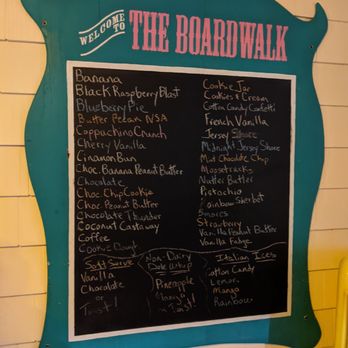 WELCOME TO
THE BOARDWALK
Banana
Black Raspberry Blast
Blueberry Pie
Butter Pecan NSA
Cappuchino Crunch
Cherry Vanilla
Cinamon Bun
Choc. Banana Peanut Butter
Chocolate
Choc Chip Cookie
Choc. Peanut Butter
Chocolate Thunder
Coconut Castaway
Coffee
Cookie
Cookie Jar
Cookies & Cream
Cotton Candy Confetti
French Vanilla
Jersey Shore
Midnight Jersey Shore
Mint Chocolate Chip
Moosetracks
Nutter Butter
Pistachio
Rainbow Sherbet
Smores
Strawberry
Vanilla Peanut Butter
Vanilla Fudge
Soft Serve
Vanilla
Chocolate
or
Twist!
Non-Dairy
Dole Whip
Pineapple
Mango
Twist!
Italian Ices
Cotton Candy
Lemon
Mango
Rainbow